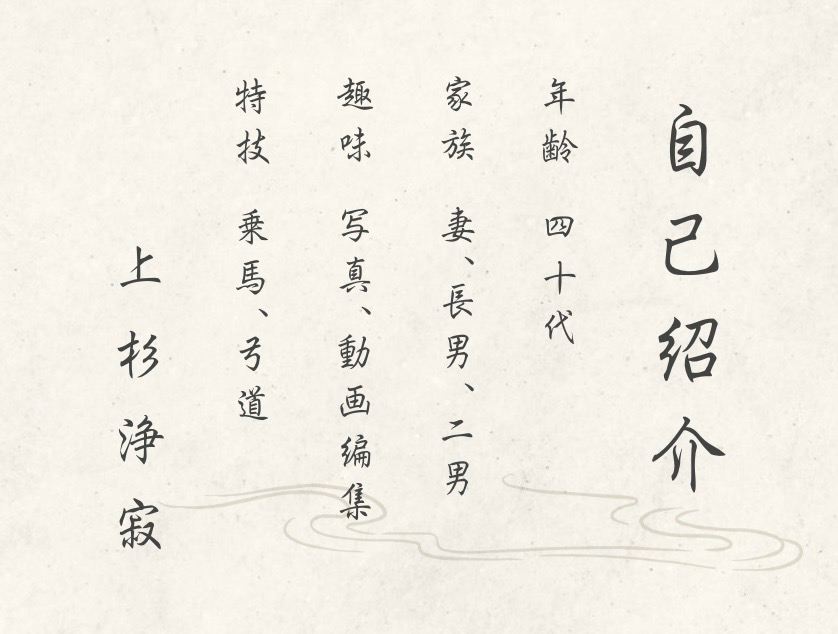 自己紹介
年齢　四十代
家族　妻、長男、二男
趣味　写真、動画編集
特技　乗馬、弓道
上杉浄寂